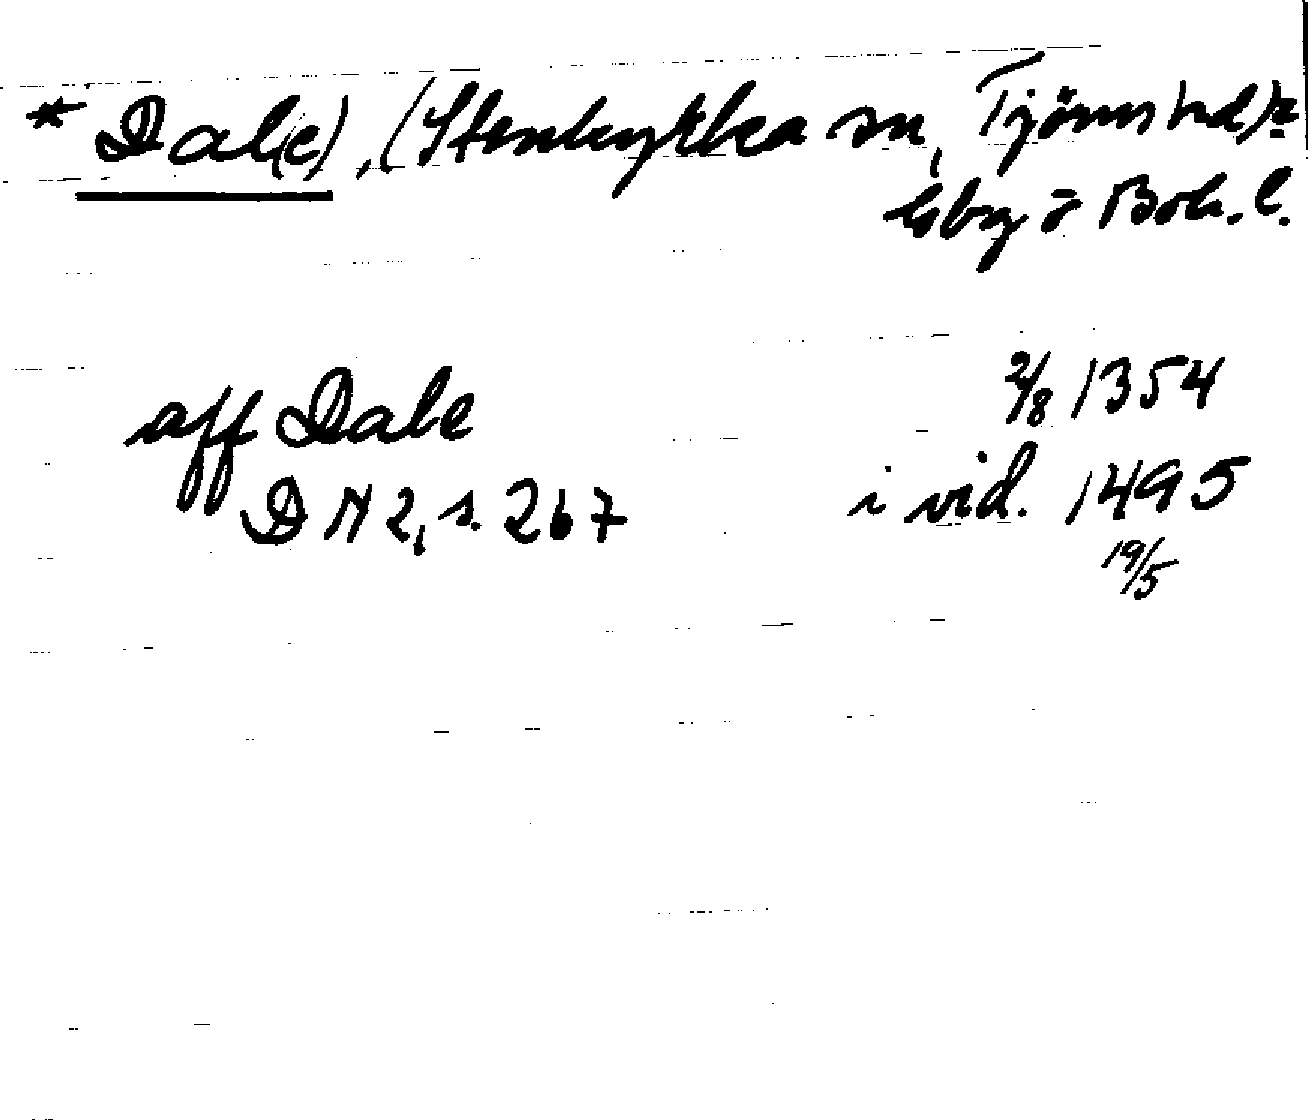 * Dal(e), (Stenkyrka sn, Tjörns hd)?
Gbg o Boh. l.
aff Dale 2/8 1354
DN 2, s. 267 i vid. 1495
19/5